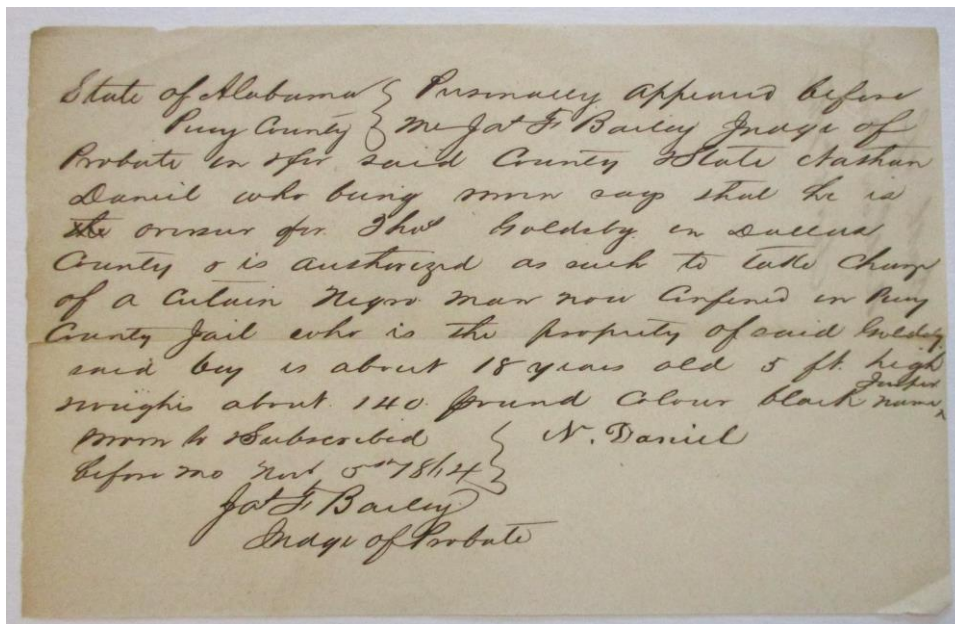 State of Alabama } Personally appeared before
Perry County } me Jas F Bailey Judge of
Probate in & for said County & State Nathan
Daniel who being sworn says that he is
the overseer for Thos Goldsby in Dallas
County & is authorized as such to take charge
of a certain Negro man now confined in Perry
County Jail who is the property of said Goldsby
said boy is about 18 years old 5 ft. high
weighs about 140 pound Colour black name Jasper
sworn to & Subscribed } N. Daniel
before me Novr 5th 1864
Jas F Bailey
Judge of Probate